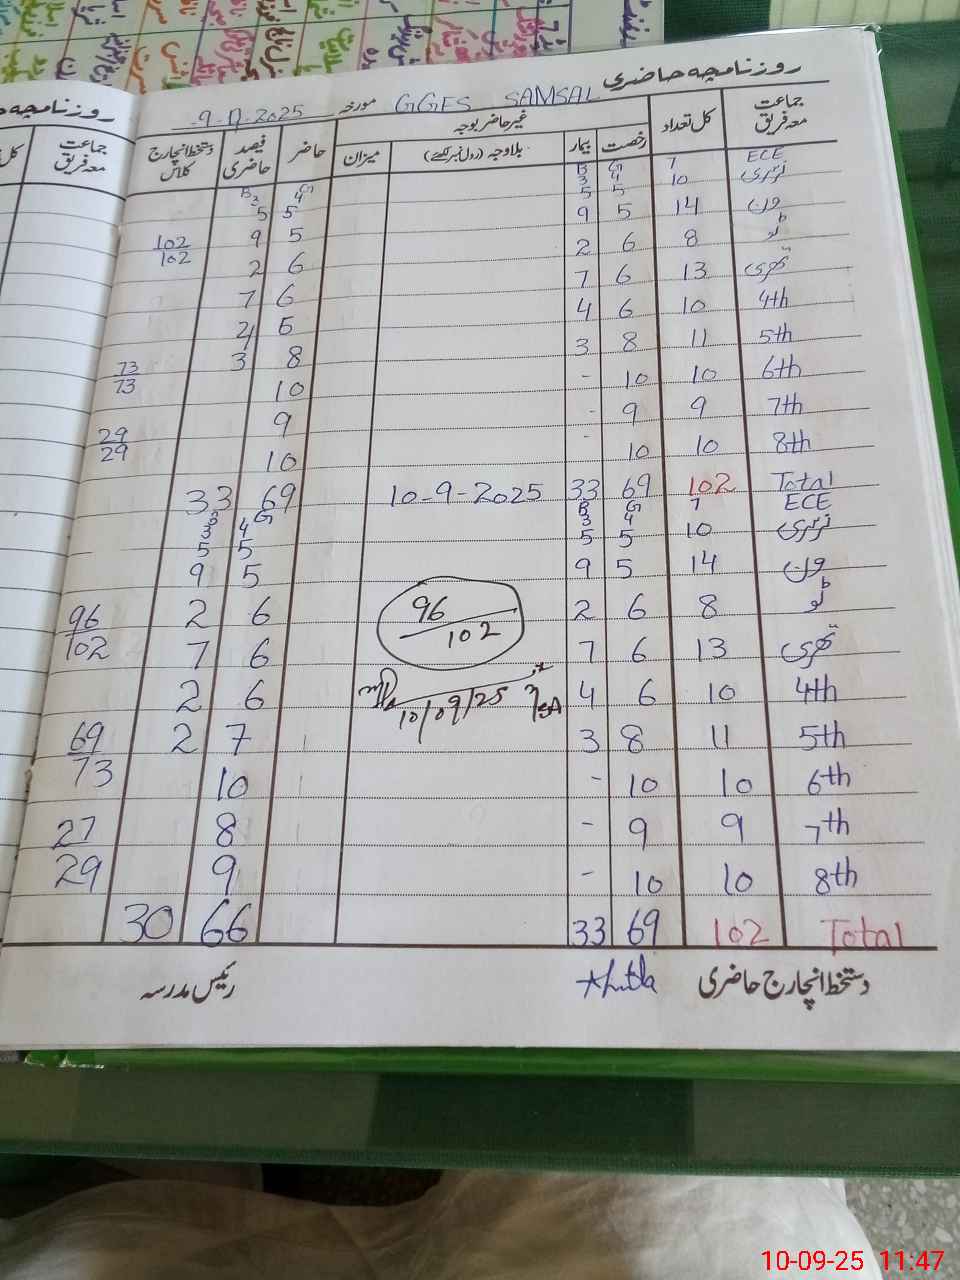 روزنامچہ حاضری
GGES SAMSAL مورخہ 9-9-2025
جماعت معہ فریق کل تعداد غیر حاضر بوجہ حاضر فیصد حاضری دستخط انچارج کلاس
رخصت بیمار بلاوجہ (رول نمبر لکھیے) میزان
ECE 7 G 4 B 3 G 4 B 3
نرسری 10 5 5 5 5
ون 14 5 9 5 9 102/102
ٹو 8 6 2 6 2
تھری 13 6 7 6 7
4th 10 6 4 6 4
5th 11 8 3 8 3 73/73
6th 10 10 - 10
7th 9 9 - 9 29/29
8th 10 10 - 10
Total 102 69 33 10-9-2025 69 33
ECE 7 G 4 B 3 G 4 B 3
نرسری 10 5 5 5 5
ون 14 5 9 5 9
ٹو 8 6 2 96/102 6 2 96/102
تھری 13 6 7 6 7
4th 10 6 4 10/09/25 6 2
5th 11 8 3 7 2 69/73
6th 10 10 - 10
7th 9 9 - 8 27
8th 10 10 - 9 29
Total 102 69 33 66 30
دستخط انچارج حاضری رئیس مدرسہ
جماعت معہ فریق
10-09-25 11:47